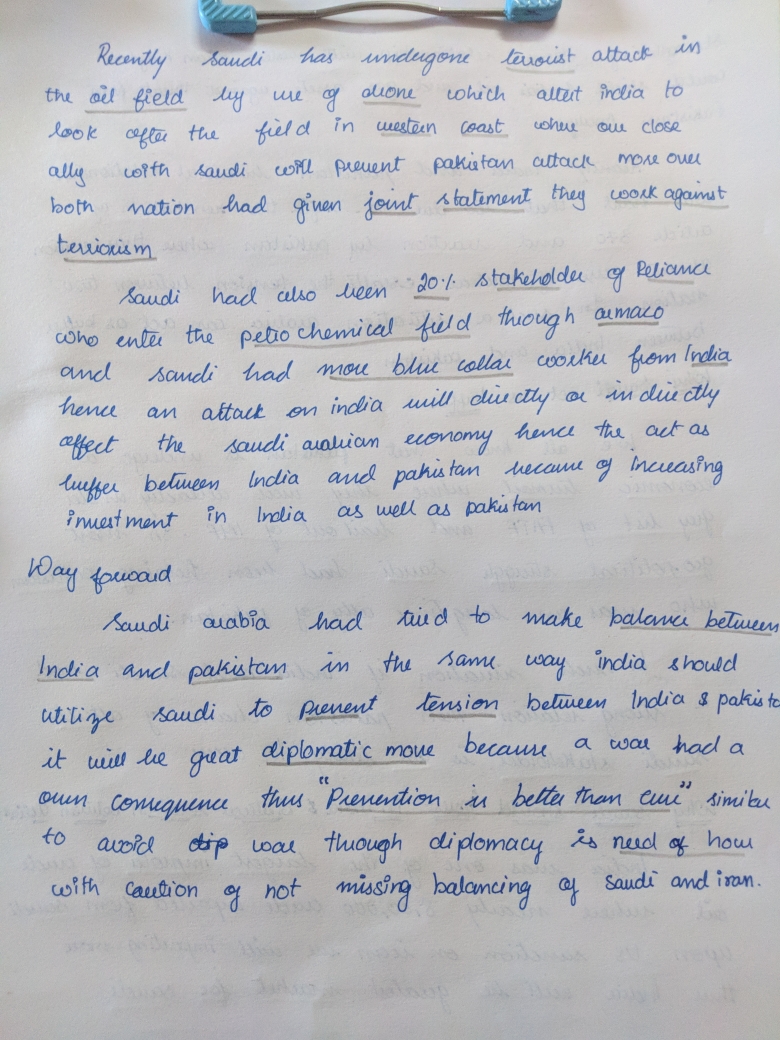 Recently Saudi has undergone terrorist attack in
the oil field by use of drone which alert india to
look after the field in western coast where our close
ally with saudi will prevent pakistan attack more over
both nation had given joint statement they work against
terriorism
Saudi had also been 20% stakeholder of Reliance
who enter the petro chemical field through armaco
and saudi had more blue collar worker from India
hence an attack on india will directly or indirectly
affect the saudi arabian economy hence the act as
buffer between India and pakistan because of increasing
investment in India as well as pakistan
Way forward
Saudi arabia had tried to make balance between
India and pakistan in the same way india should
utilize saudi to prevent tension between India & pakist
it will be great diplomatic move because a war had a
own consequence thus "Prevention is better than cure" similar
to avoid war through diplomacy is need of hour
with caution of not missing balancing of Saudi and iran.